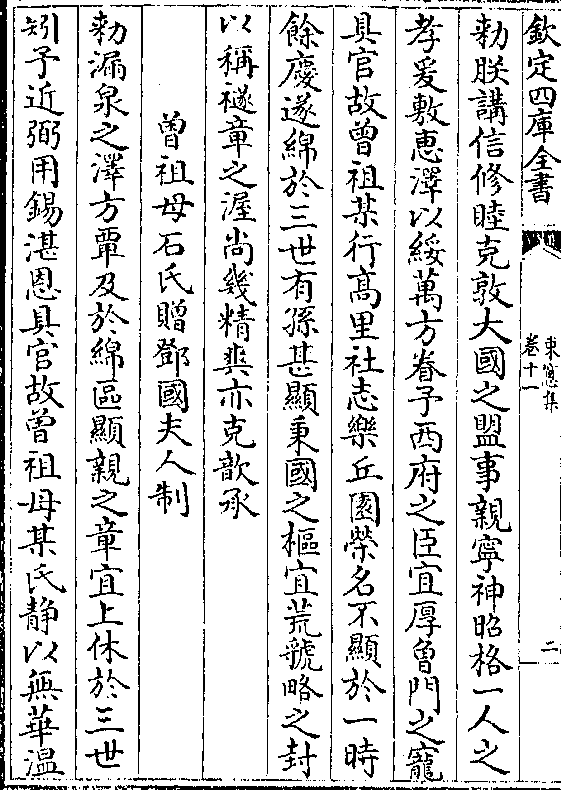 欽定四庫全書
東窻集
卷十一
二
勅朕講信修睦克敦大國之盟事親寧神昭格一人之
孝爰敷惠澤以綏萬方眷予西府之臣宜厚魯門之寵
具官故曾祖某行髙里社志樂丘園榮名不顯於一時
餘慶遂綿於三世有孫甚顯秉國之樞宜荒虢略之封
以稱襚章之渥尚幾精爽亦克歆承
曾祖母石氏贈鄧國夫人制
勅漏泉之澤方覃及於綿區顯親之章宜上休於三世
矧予近弼用錫湛恩具官故曾祖母某氏静以無華温